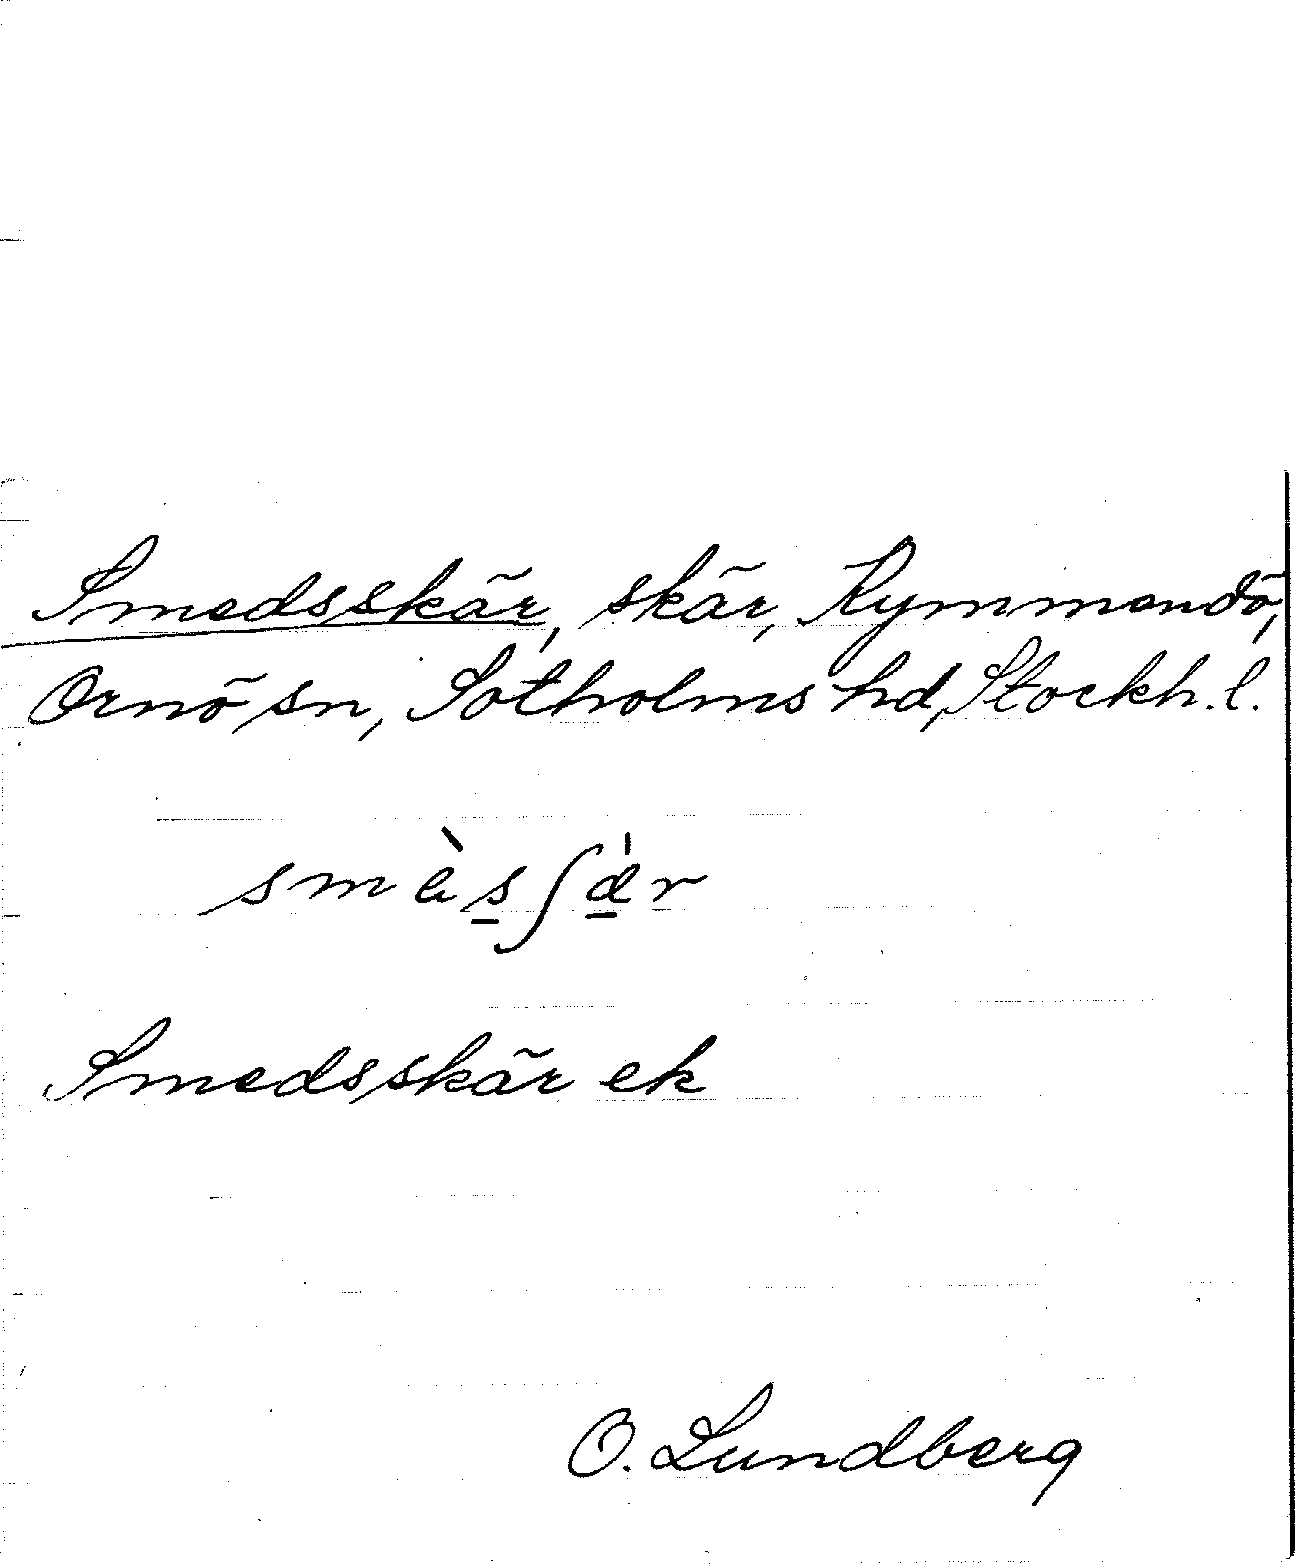 Smedsskär, skär, Rymmendö,
Ornö sn, Sotholms hd, Stockh. l.
smès̲ʃä̲́r
Smedsskär ek
O. Lundberg